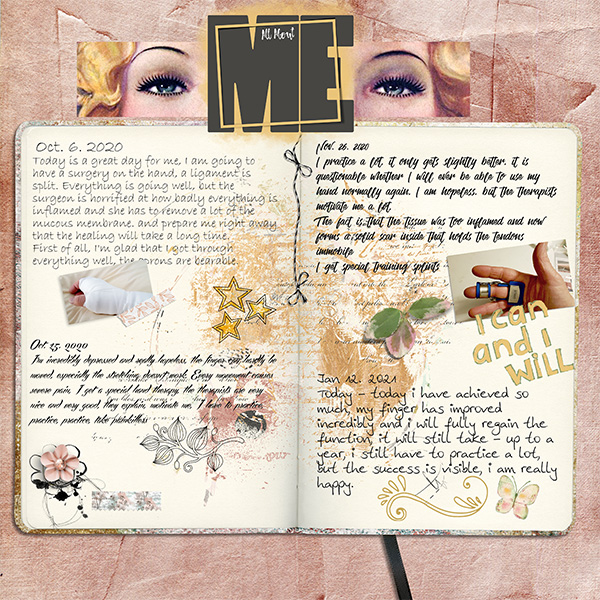 All About
ME
Oct. 6. 2020
Today is a great day for me, I am going to
have a surgery on the hand, a ligament is
split. Everything is going well, but the
surgeon is horrified at how badly everything is
inflamed and she has to remove a lot of the
mucous membrane. and prepare me right away
that the healing will take a long time.
First of all, I'm glad that I got through
everything well, the are bearable
Oct. 25. 2020
I'm incredibly depressed and sadly hopeless, the finger can hardly be
moved, especially the stretching doesn't work. Every movement causes
severe pain. I get a special hand therapy, the therapists are very
nice and very good, they explain, motivate me. I have to practice,
practice, practice, take painkillers
Nov. 26. 2020
I practice a lot, it only gets slightly better. it is
questionable whether I will ever be able to use my
hand normally again. I am hopeless. but the therapists
motivate me a lot.
The fact is that the tissue was too inflamed and now
forms a solid scar inside that holds the tendons
immobile
I got special training splints
i can
and i
WILL
Jan 12. 2021
Today - today i have achieved so
much, my finger has improved
incredibly and i will fully regain the
function, it will still take - up to a
year, i still have to practice a lot,
but the success is visible, i am really
happy.